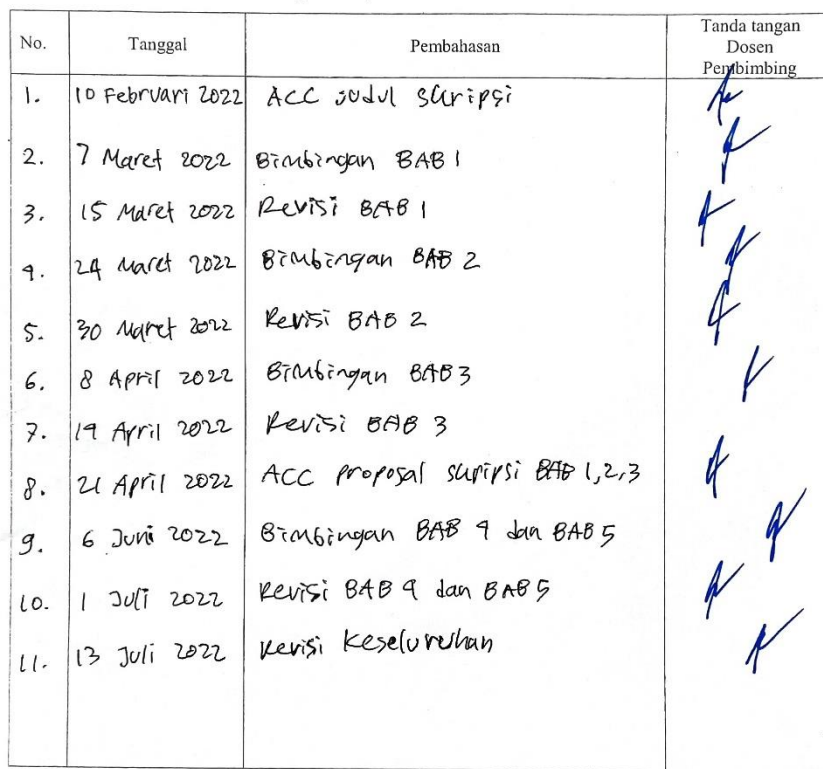 No. Tanggal Pembahasan Tanda tangan
Dosen
Pembimbing
1. 10 Februari 2022 ACC judul skripsi
2. 7 Maret 2022 Bimbingan BAB 1
3. 15 Maret 2022 Revisi BAB 1
4. 24 Maret 2022 Bimbingan BAB 2
5. 30 Maret 2022 Revisi BAB 2
6. 8 April 2022 Bimbingan BAB 3
7. 19 April 2022 Revisi BAB 3
8. 21 April 2022 ACC proposal skripsi BAB 1,2,3
9. 6 Juni 2022 Bimbingan BAB 4 dan BAB 5
10. 1 Juli 2022 Revisi BAB 4 dan BAB 5
11. 13 Juli 2022 Revisi Keseluruhan